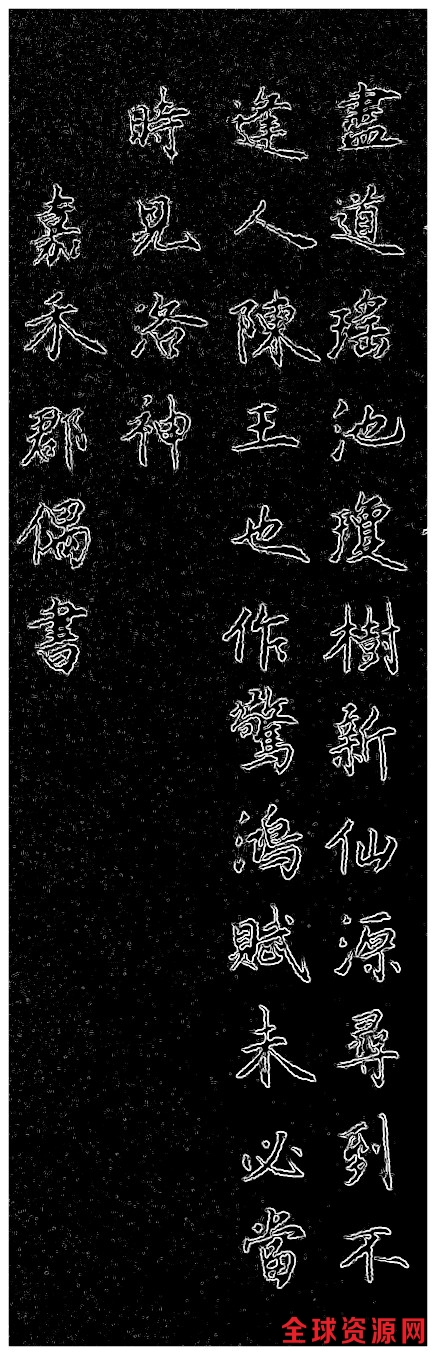 盡道瑤池瓊樹新仙源尋到不
逢人陳王也作驚鴻賦未必當
時見洛神
嘉禾郡偶書
全球资源网